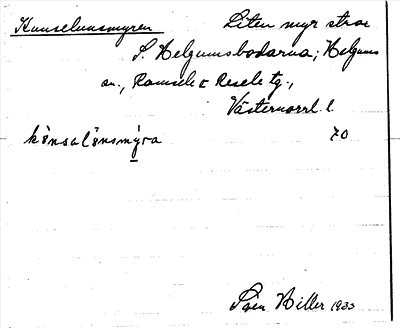 Kunselunsmyren Liten myr strax
S. Helgumsbodarna; Helgums
sn., Ramsele o Resele tg.,
Västernorrl. l.
kônsalônsmýra 70
Sven Hiller 1933